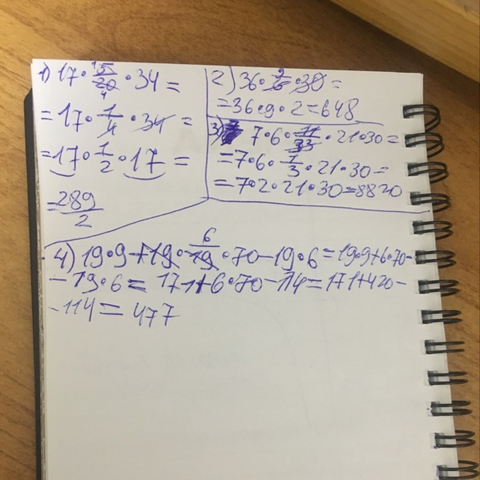 1) 17·5/20·34=
=17·1/4·34=
=17·1/2·17=
=289/2
2) 36·9/6·30=
=36·9·2=648
3) 7·6·11/33·21·30=
=7·6·1/3·21·30=
=7·2·21·30=8820
4) 19·9+19·6/19·70-19·6=19·9+6·70-
-19·6=171+6·70-114=171+420-
-114=477